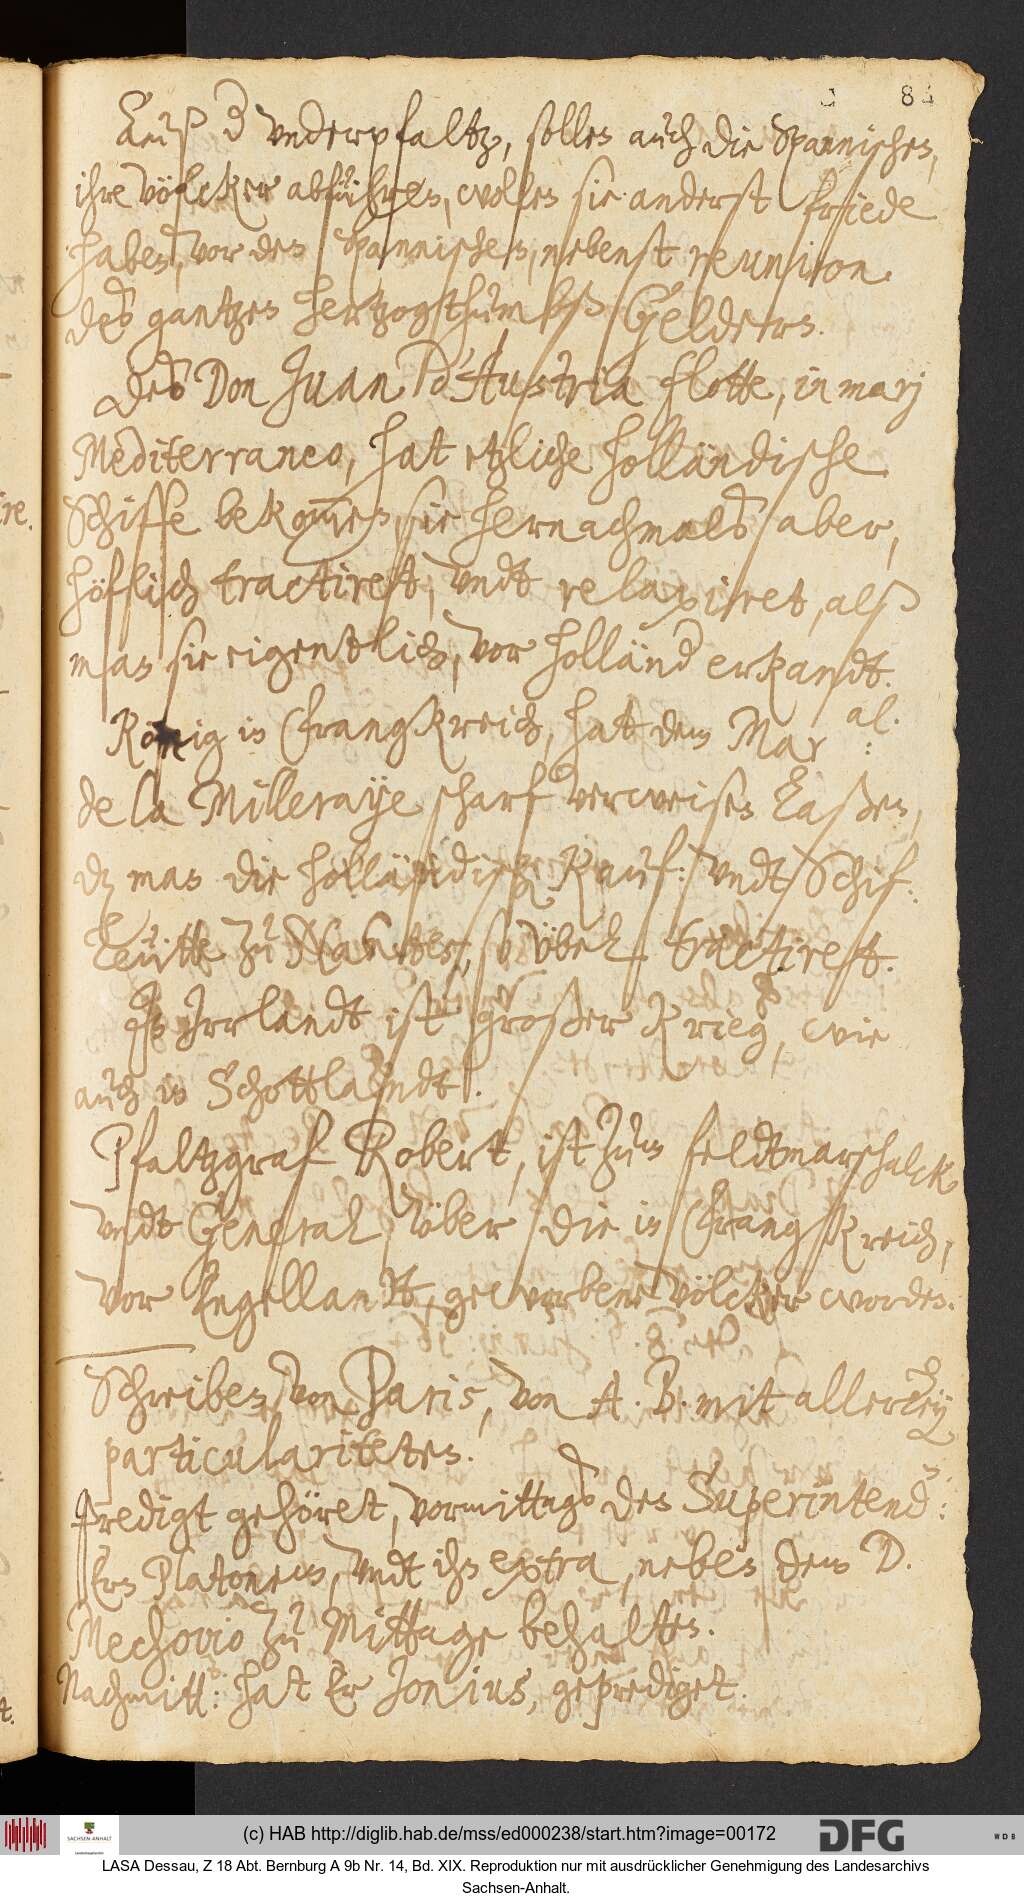 84
Auß der Vnderpfaltz, sollen auch die Spannischen,
ihre völcker abführen, wollen sie anderst friede
haben, vor den Spannischen, nebenst reunion
des gantzen Hertzogthumbß Geldern.
Des Don Juan d'Austria flotte, in marj
Mediterraneo, hat etzliche holländische
Schiffe bekommen, sie hernachmalß aber,
höflich tractiret, vndt relaxiret, alß
man sie eigentlich, vor Holländ erkandt.
König in Frangkreich, hat dem Mar al:
de la Milleraye scharf verweisen laßen,
dz man die holländische Kauf: vndt Schif:
Leutte zu Nantes, so übel tractiret.
In Irrlandt ist großer Krieg, wie
auch in Schottlandt.
Pfaltzgraf Robert, ist zum feldtmarschalck
vndt General über die in Frangkreich,
vor Engellandt, geworbene völcker worden.
Schreiben von Paris, von A. B. mit allerley
particulariteten.
Predigt gehöret, vormittagß des Superintend:
Ern Platonem, vndt ihn extra, neben dem D.
Mechovio zu Mittage behalten.
Nachmitt: hat Er Jonius, geprediget.
(c) HAB http://diglib.hab.de/mss/ed000238/start.htm?image=00172
SACHSEN-ANHALT
DFG
WDB
LASA Dessau, Z 18 Abt. Bernburg A 9b Nr. 14, Bd. XIX. Reproduktion nur mit ausdrücklicher Genehmigung des Landesarchivs
Sachsen-Anhalt.